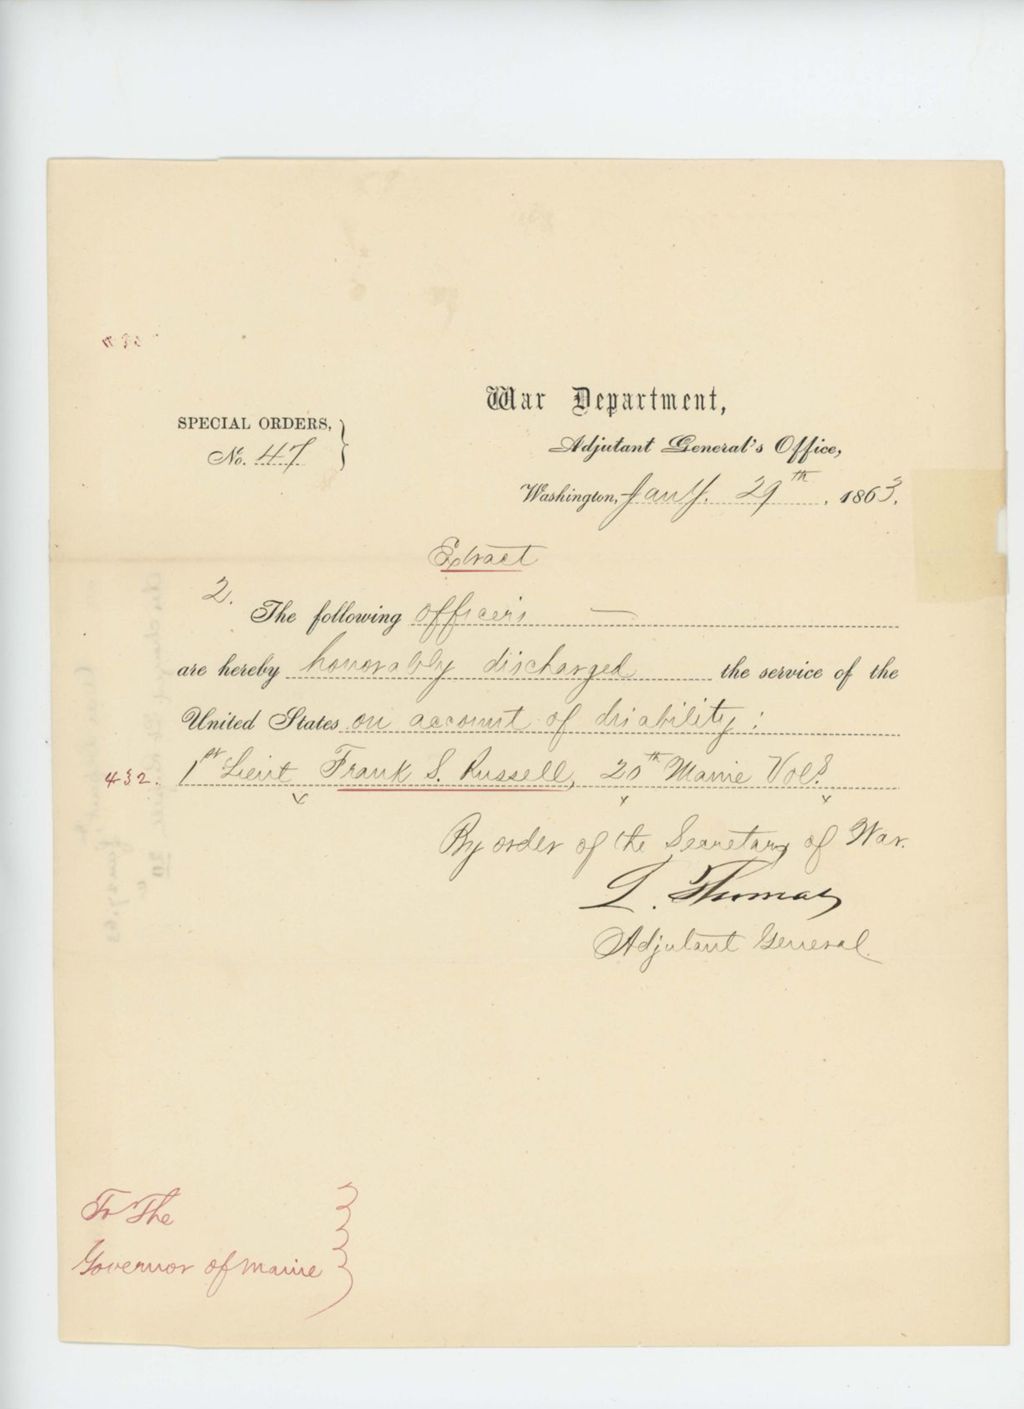 War Department,
SPECIAL ORDERS,
No. 47
Adjutant General's Office,
Washington, Jany. 29th, 1863.
Extract
2.
The following officers —
are hereby honorably discharged the service of the
United States on account of disability:
432. 1st Lieut Frank S. Russell, 20th Maine Vols.
By order of the Secretary of War.
L. Thomas
Adjutant General.
To The
Governor of Maine